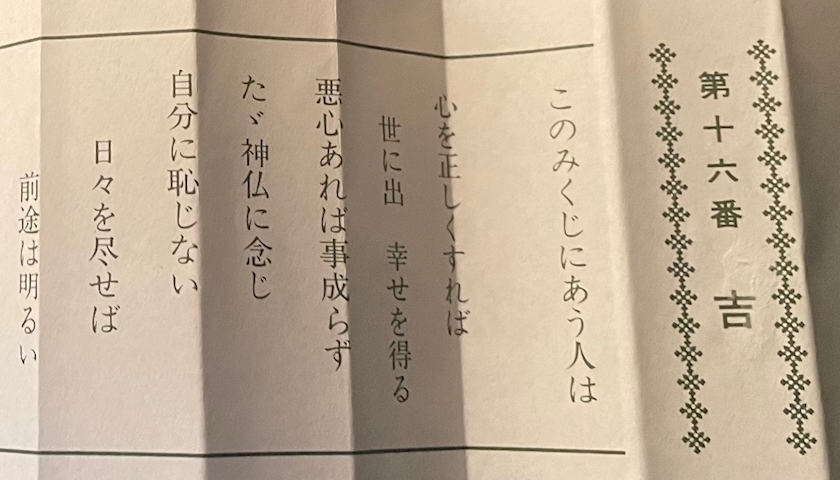 第十六番 吉
このみくじにあう人は
心を正しくすれば
世に出 幸せを得る
悪心あれば事成らず
たゞ神仏に念じ
自分に恥じない
日々を尽せば
前途は明るい